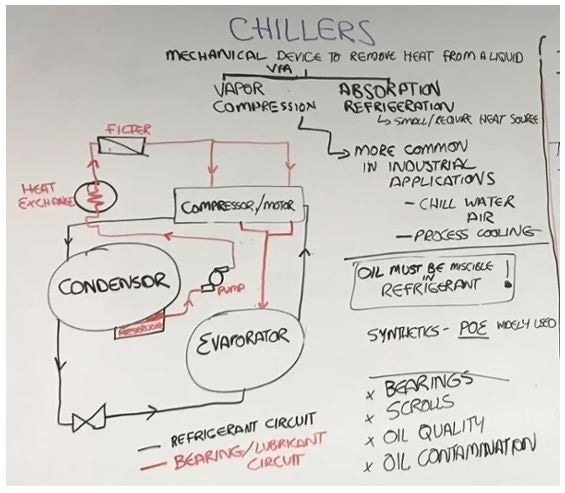 CHILLERS
MECHANICAL DEVICE TO REMOVE HEAT FROM A LIQUID
VIA
VAPOR
COMPRESSION
ABSORPTION
REFRIGERATION
↳ SMALL/REQUIRE HEAT SOURCE
MORE COMMON
IN INDUSTRIAL
APPLICATIONS
- CHILL WATER
AIR
- PROCESS COOLING
FILTER
HEAT
EXCHANGE
COMPRESSOR/MOTOR
CONDENSOR
PUMP
RESERVOIR
EVAPORATOR
OIL MUST BE MISCIBLE
IN
REFRIGERANT !
SYNTHETICS - POE WIDELY USED
x BEARINGS
x SCROLLS
x OIL QUALITY
x OIL CONTAMINATION
— REFRIGERANT CIRCUIT
— BEARING/LUBRICANT
CIRCUIT